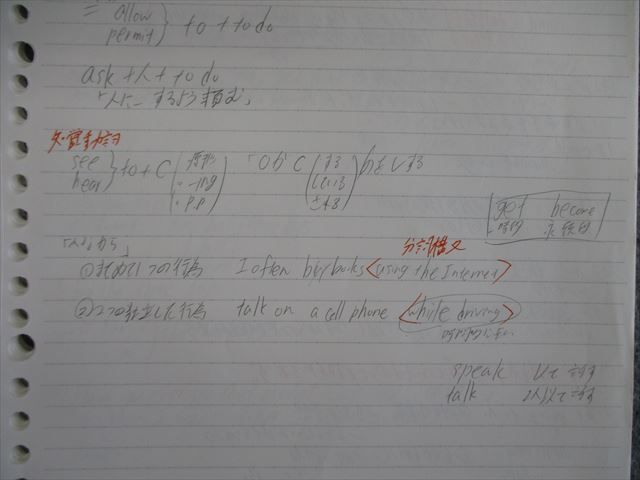 = allow
permit } to + to do
ask + 人 + to do
「人に〜するよう頼む」
知覚動詞
see
hear } to + C ( 原形 ・-ing ・p.p ) 「OがC ( する している される ) のを〜する
get become
「〜ながら」
分詞構文
①まとめて1つの行為 I often buy books <using the Internet>
②2つの独立した行為 talk on a cell phone <while driving>
speak 1人で話す
talk 2人以上で話す